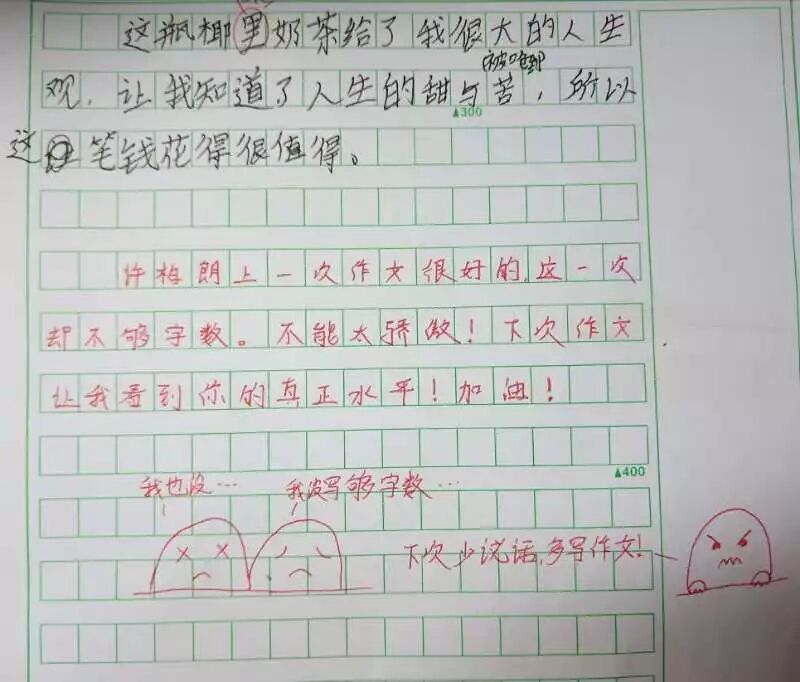 这瓶椰里奶茶给了我很大的人生
观，让我知道了人生的甜与苦，所以
▲300
这笔钱花得很值得。
许梅朗上一次作文很好的，这一次
却不够字数。不能太骄傲！下次作文
让我看到你的真正水平！加油！
▲400
我也没…
我没写够字数…
下次少说话，多写作文！